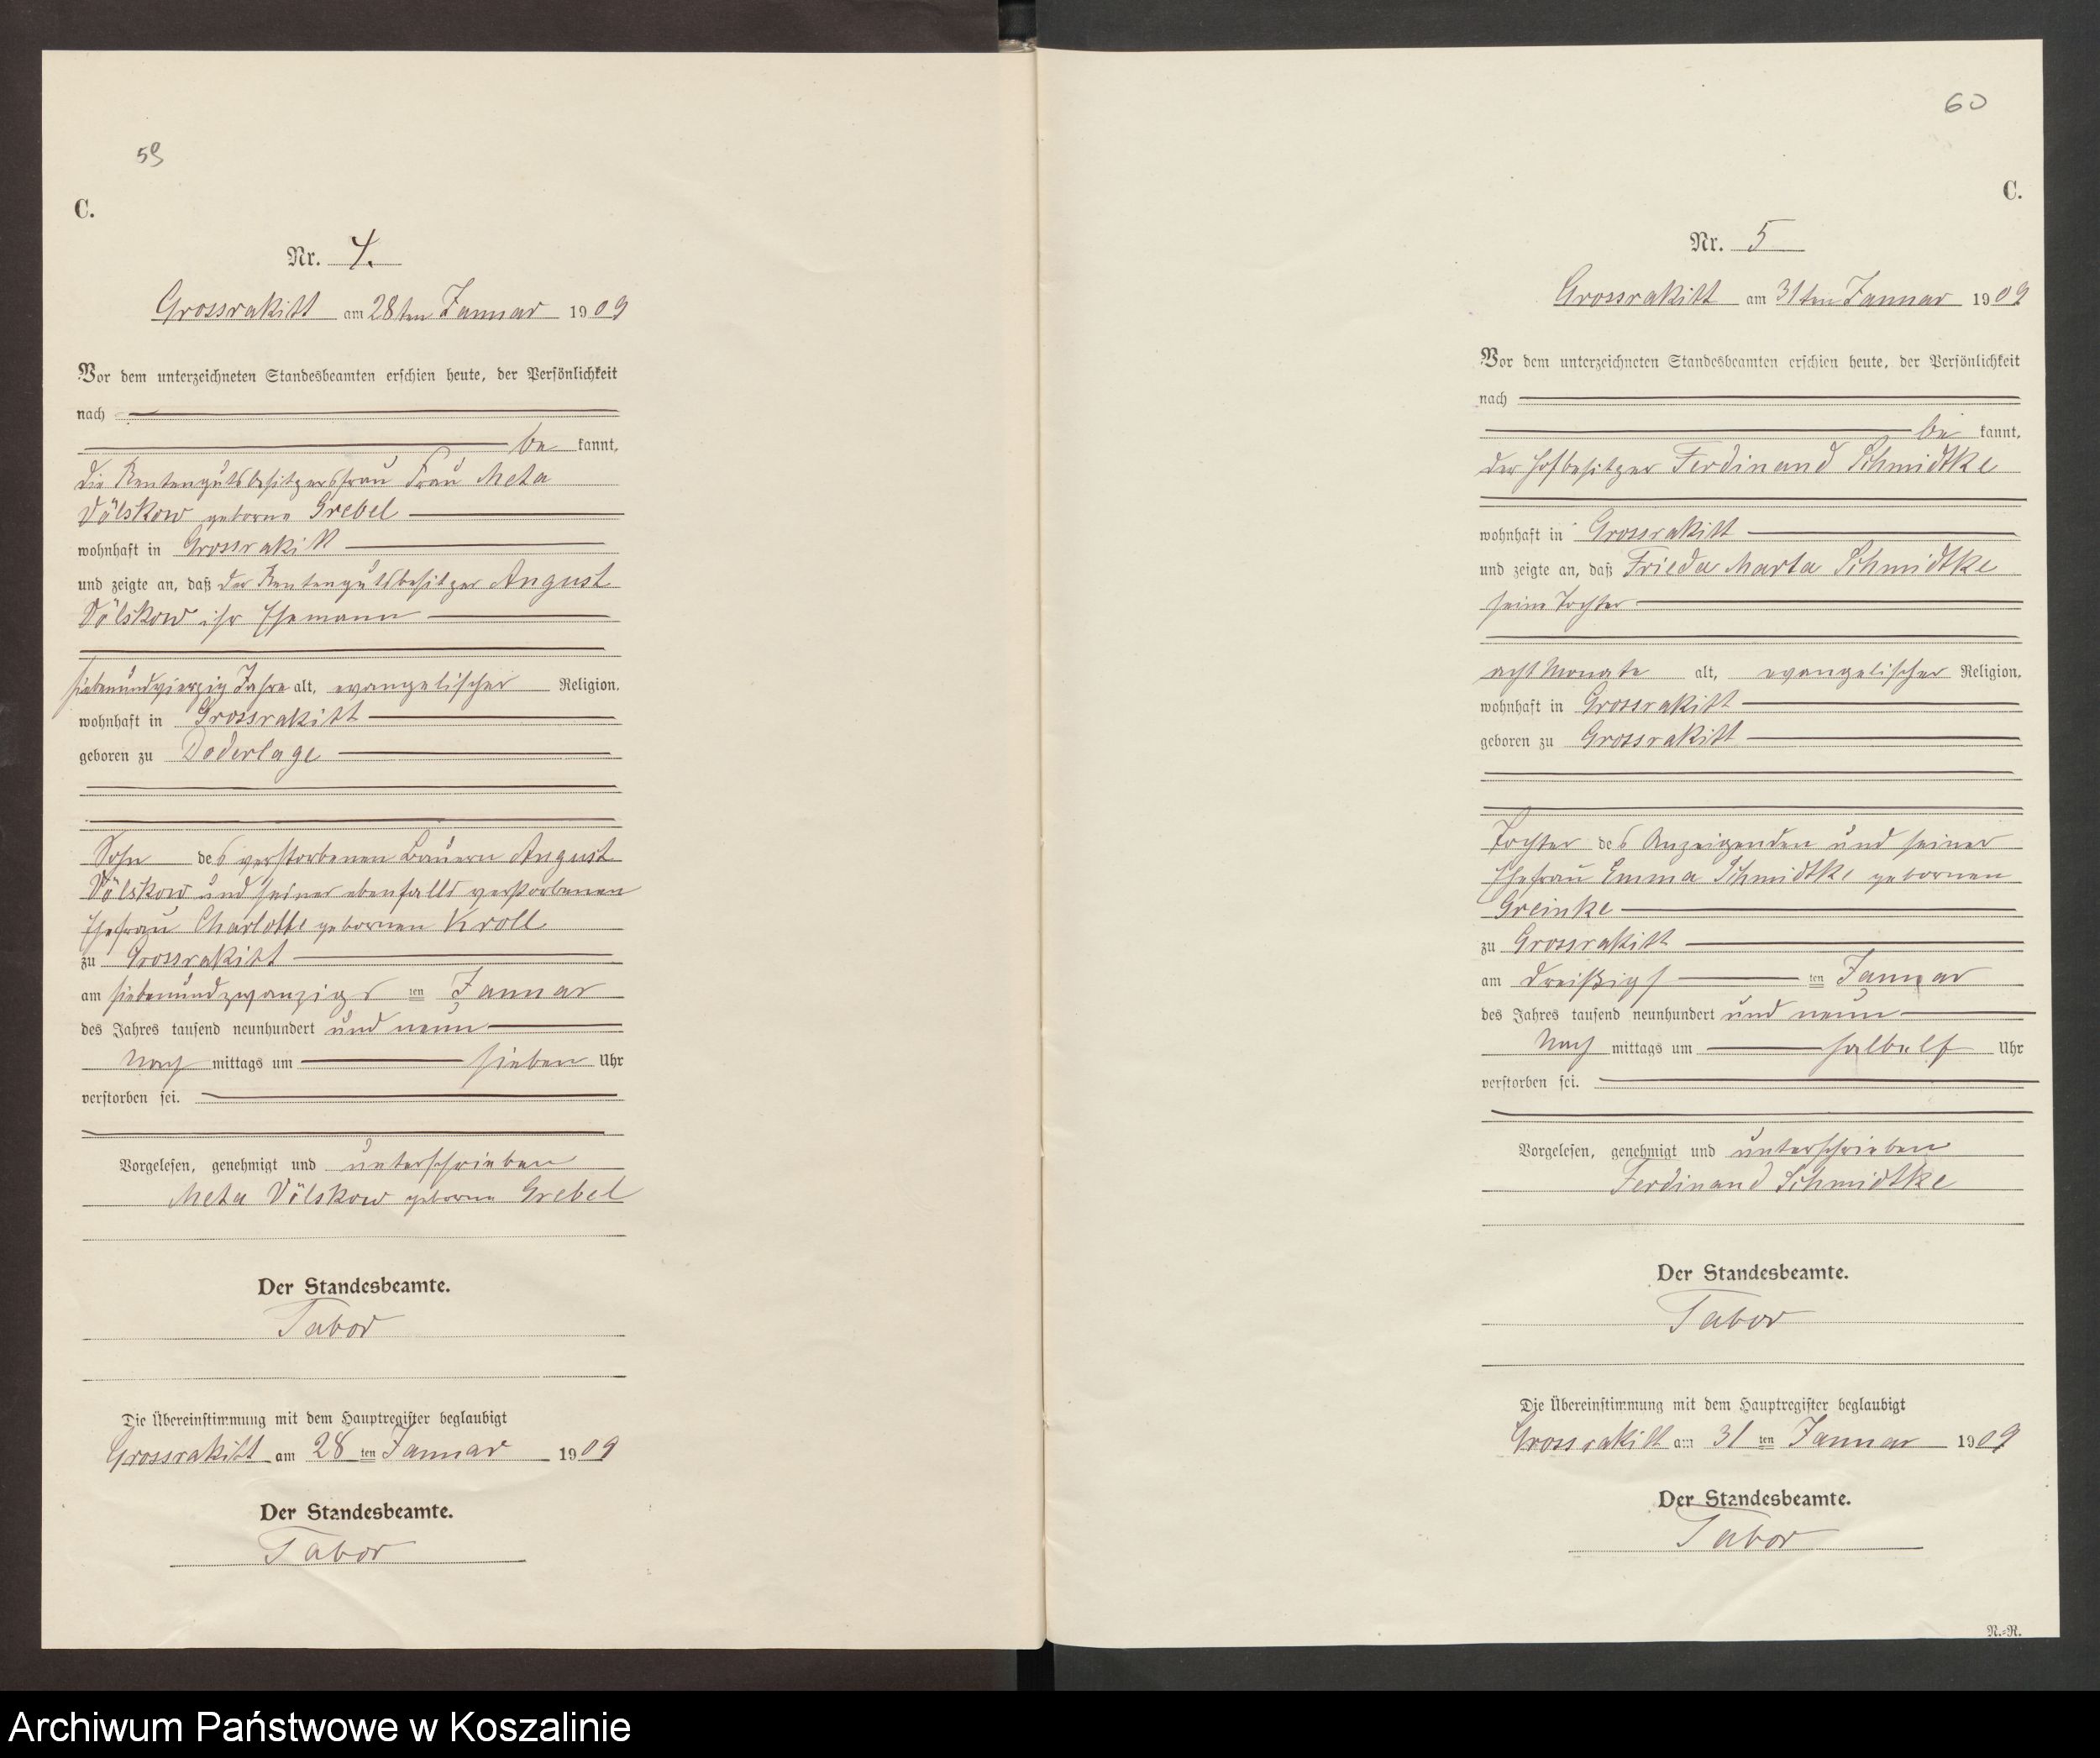 59
C.
Nr. 4.
Grossrakitt am 28ten Januar 1909
Vor dem unterzeichneten Standesbeamten erschien heute, der Persönlichkeit
nach
be kannt,
die Rentengutsbesitzersfrau Frau Meta
Völskow geborne Grebel
wohnhaft in Grossrakitt
und zeigte an, daß der Rentengutsbesitzer August
Völskow ihr Ehemann
siebenundvierzig Jahre alt, evangelischer Religion,
wohnhaft in Grossrakitt
geboren zu Doderlage
Sohn des verstorbenen Bauern August
Völskow und seiner ebenfalls verstorbenen
Ehefrau Charlotte gebornen Kroll
zu Grossrakitt
am siebenundzwanzigs ten Januar
des Jahres tausend neunhundert und neun
Nach mittags um sieben Uhr
verstorben sei.
Vorgelesen, genehmigt und unterschrieben
Meta Völskow geborne Grebel
Der Standesbeamte.
Tabor
Die Übereinstimmung mit dem Hauptregister beglaubigt
Grossrakitt am 28 ten Januar 1909
Der Standesbeamte.
Tabor
60
C.
Nr. 5
Grossrakitt am 31ten Januar 1909
Vor dem unterzeichneten Standesbeamten erschien heute, der Persönlichkeit
nach
be kannt,
der Hofbesitzer Ferdinand Schmidtke
wohnhaft in Grossrakitt
und zeigte an, daß Frieda Marta Schmidtke
seine Tochter
acht Monate alt, evangelischer Religion,
wohnhaft in Grossrakitt
geboren zu Grossrakitt
Tochter des Anzeigenden und seiner
Ehefrau Emma Schmidtke gebornen
Greinke
zu Grossrakitt
am dreißigs ten Januar
des Jahres tausend neunhundert und neun
Nach mittags um halb elf Uhr
verstorben sei.
Vorgelesen, genehmigt und unterschrieben
Ferdinand Schmidtke
Der Standesbeamte.
Tabor
Die Übereinstimmung mit dem Hauptregister beglaubigt
Grossrakitt am 31 ten Januar 1909
Der Standesbeamte.
Tabor
N.-R.
Archiwum Państwowe w Koszalinie